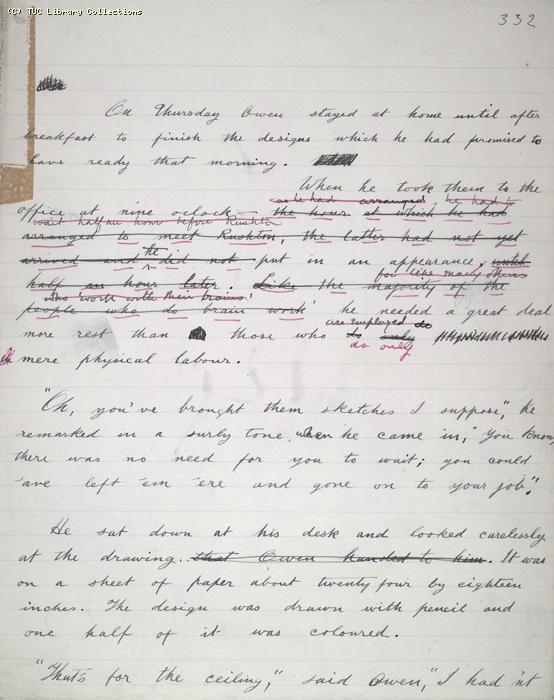 (C) TUC Library Collections
332
On Thursday Owen stayed at home until after
breakfast to finish the designs which he had promised to
have ready that morning.
When he took them to the
as he had arranged he had to
office at nine oclock the hour at which he had
wait half an hour before Rushton
arranged to meet Rushton, the latter had not yet
arrived and he did not put in an appearance, until
for like many others
half an hour later. Like the majority of the
who work with their brains'
people who do brain work' he needed a great deal
are employed do
more rest than those who do only
do only
mere physical labour.
"Oh, you've brought them sketches I suppose," he
remarked in a surly tone, when he came in, "You know,
there was no need for you to wait; you could
'ave left 'em 'ere and gone on to your job".
He sat down at his desk and looked carelessly
at the drawing. that Owen handed to him. It was
on a sheet of paper about twenty four by eighteen
inches. The design was drawn with pencil and
one half of it was coloured.
"That's for the ceiling," said Owen, "I had'nt